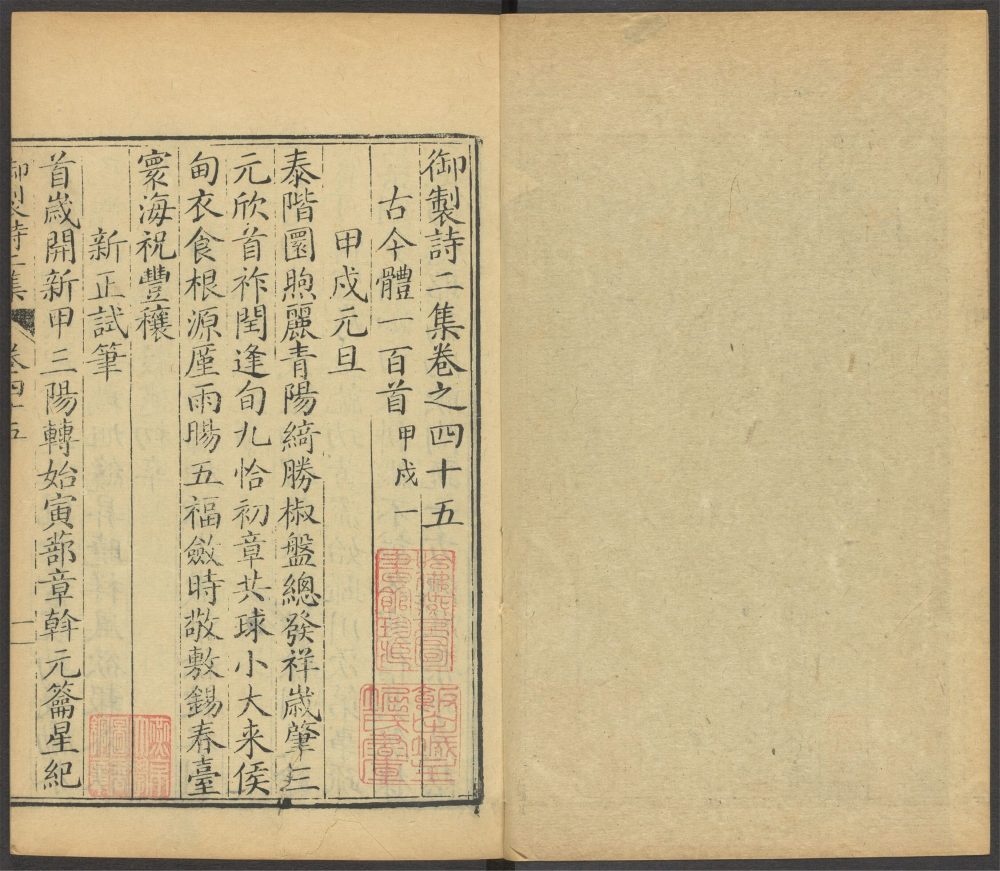 御製詩二集卷之四十五
古今體一百首甲戌一
甲戌元旦
泰階圜煦麗青陽綺勝椒盤總發祥歲肇三
元欣首祚閏逢旬九恰初章共球小大来侯
甸衣食根源廑雨暘五福斂時敬敷錫春臺
寰海祝豐穰
新正試筆
首歲開新甲三陽轉始寅蔀章斡元籥星紀
御製詩二集
卷四十五
一